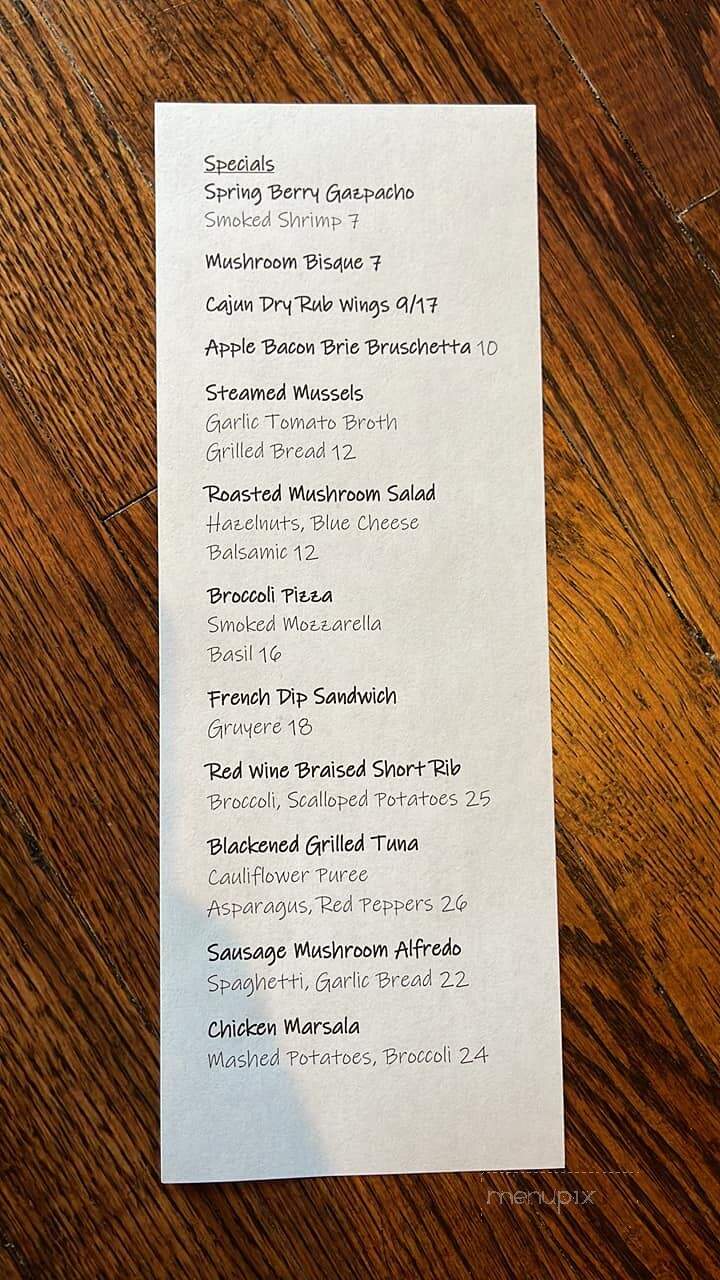 Specials
Spring Berry Gazpacho
Smoked Shrimp 7
Mushroom Bisque 7
Cajun Dry Rub Wings 9/17
Apple Bacon Brie Bruschetta 10
Steamed Mussels
Garlic Tomato Broth
Grilled Bread 12
Roasted Mushroom Salad
Hazelnuts, Blue Cheese
Balsamic 12
Broccoli Pizza
Smoked Mozzarella
Basil 16
French Dip Sandwich
Gruyere 18
Red Wine Braised Short Rib
Broccoli, Scalloped Potatoes 25
Blackened Grilled Tuna
Cauliflower Puree
Asparagus, Red Peppers 26
Sausage Mushroom Alfredo
Spaghetti, Garlic Bread 22
Chicken Marsala
Mashed Potatoes, Broccoli 24
menupix